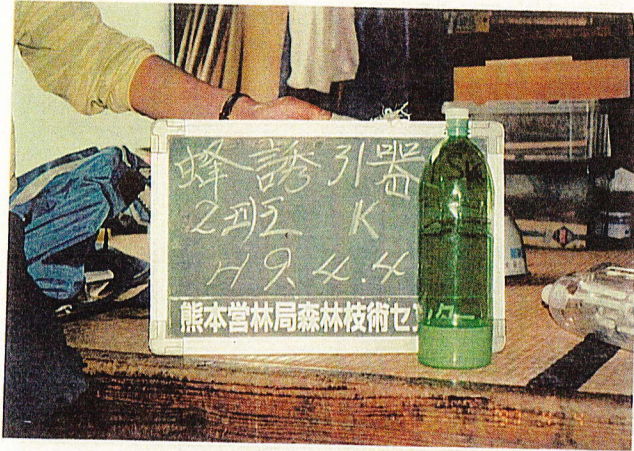 蜂誘引器
2班 K
H9.4.4
熊本営林局森林技術センター